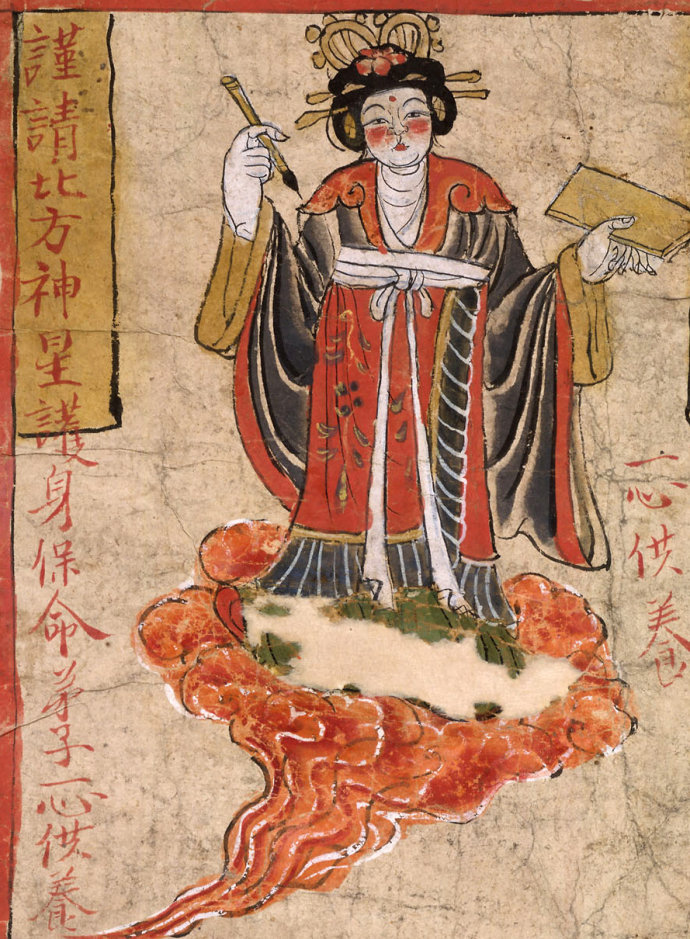 一心供養
謹請北方神星護身保命弟子一心供養